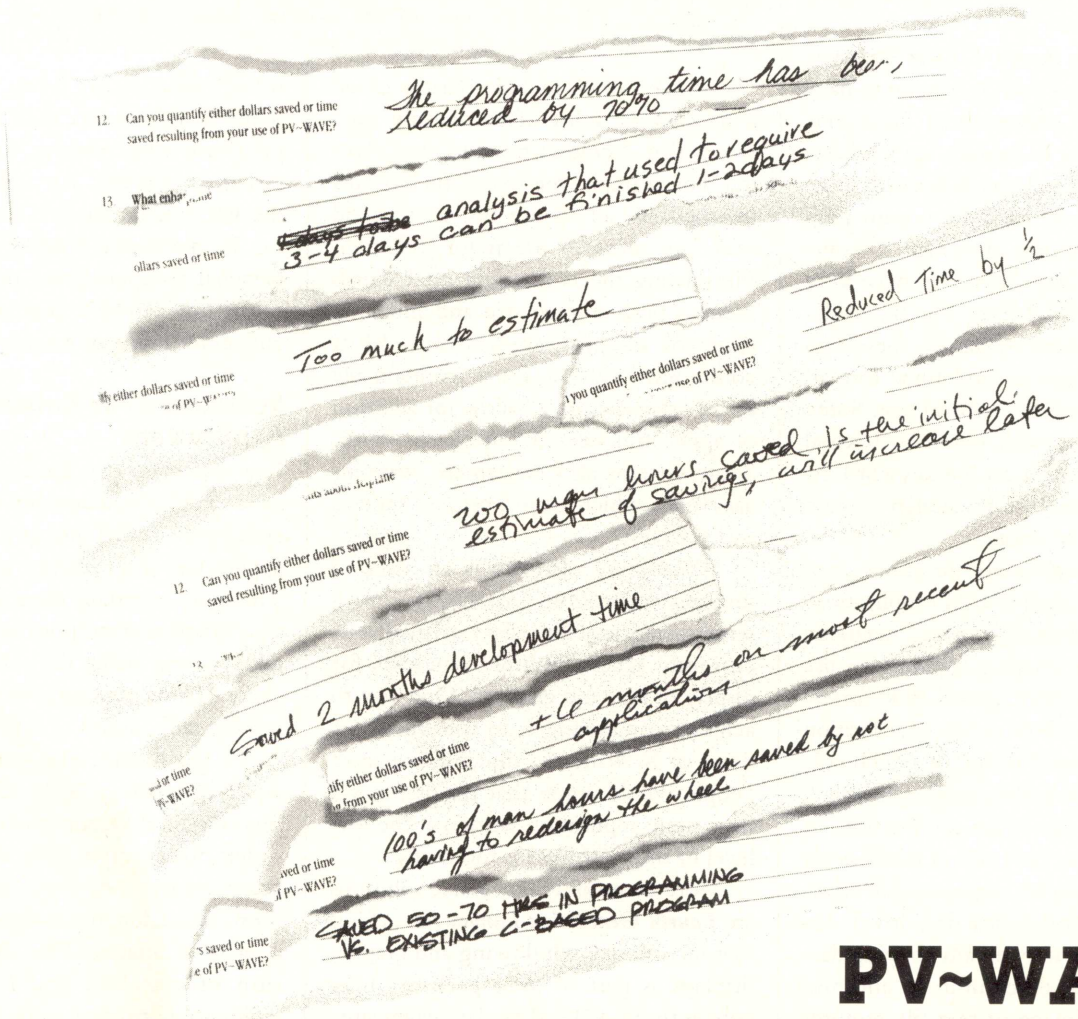 12. Can you quantify either dollars saved or time
saved resulting from your use of PV~WAVE?
The programming time has been,
reduced by 70%
13. What
ollars saved or time
4 days to be analysis that used to require
3-4 days can be finished 1-2 days
Too much to estimate
ify either dollars saved or time
e of PV~W
Reduced Time by ½
you quantify either dollars saved or time
use of PV~WAVE?
200 man hours saved is the initial
estimate of savings, will increase later
12. Can you quantify either dollars saved or time
saved resulting from your use of PV~WAVE?
Saved 2 months development time
or time
V~WAVE?
months on most recent
application
tify either dollars saved or time
from your use of PV~WAVE?
100's of man hours have been saved by not
having to redesign the wheel
ved or time
f PV~WAVE?
SAVED 50-70 HRS IN PROGRAMMING
VS. EXISTING C-BASED PROGRAM
's saved or time
e of PV~WAVE?
PV~WA